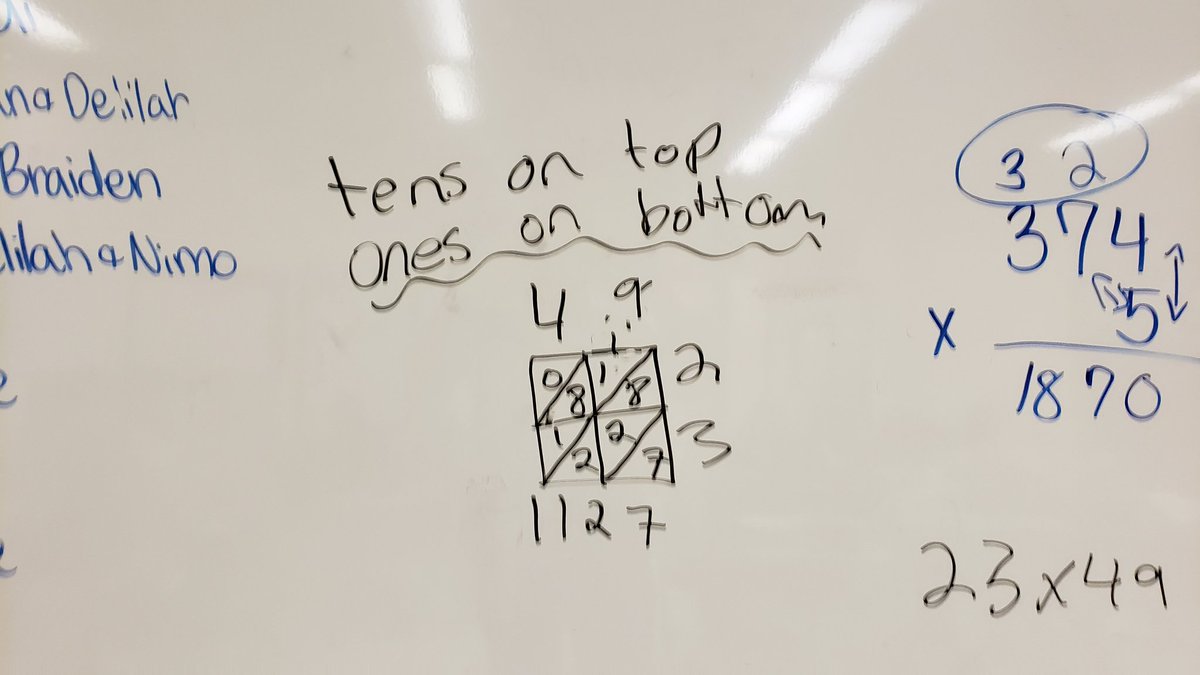 Delilah
Braiden
& Nimo
tens on top
ones on bottom
4 9
0 8 1 8 2
1 2 2 7 3
1127
3 2
374
x 5
1870
23x49